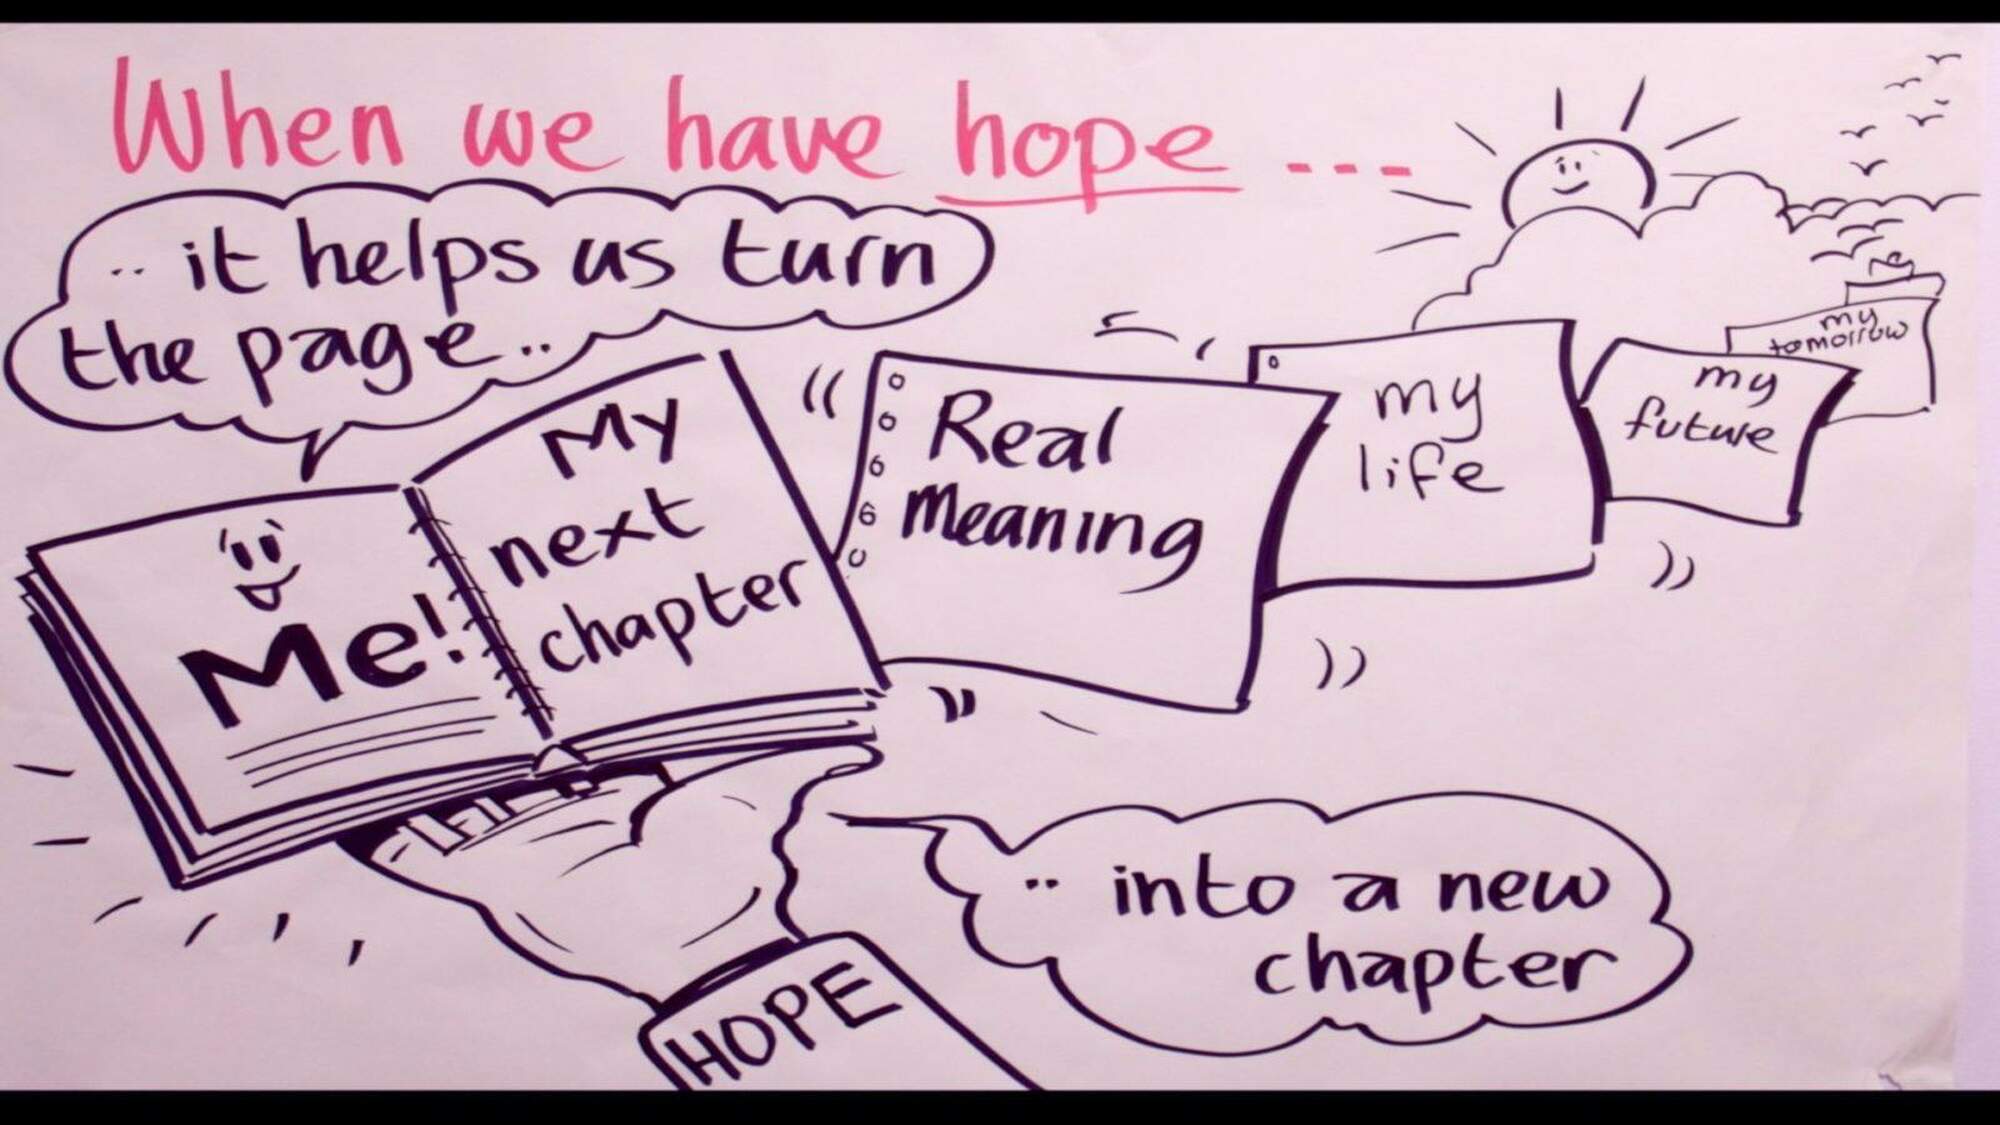 When we have hope ---
.. it helps us turn
the page..
Me!
My
next
chapter
Real
Meaning
my
life
my
future
my
tomorrow
.. into a new
chapter
HOPE